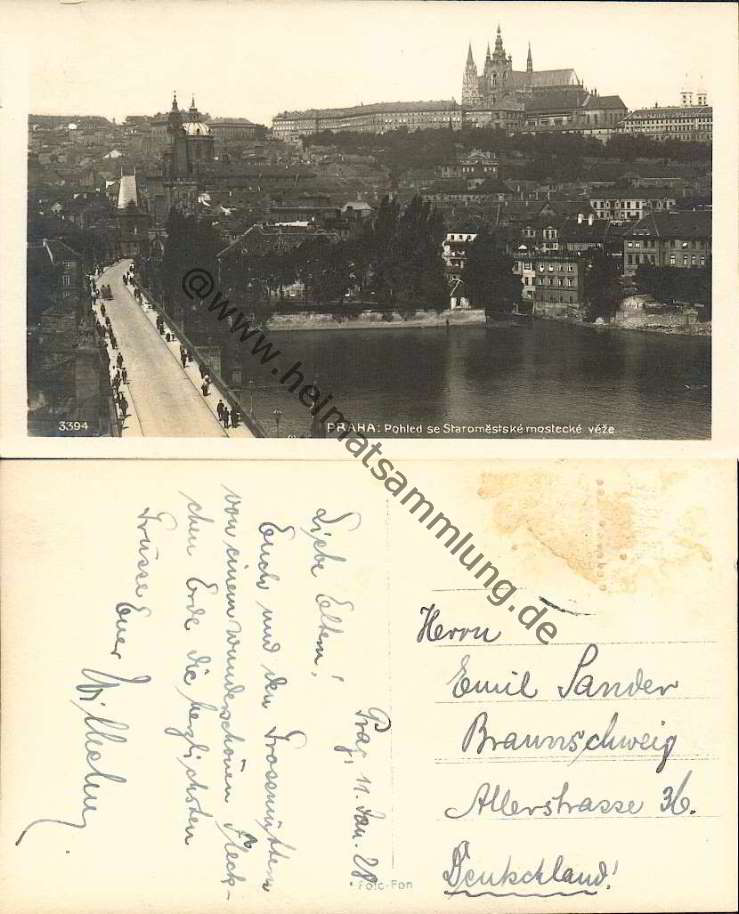 3394
PRAHA: Pohled se Staroměstské mostecké věže
@www.heimatsammlung.de
Prag, 11. Jan. 28.
Liebe Eltern!
Euch und den Grossmüttern
von einem wunderschönen Fleck-
chen Erde die herzlichsten
Grüsse Euer Wilhelm.
Foto-Fon
Herrn
Emil Sander
Braunschweig
Allerstrasse 36.
Deutschland!